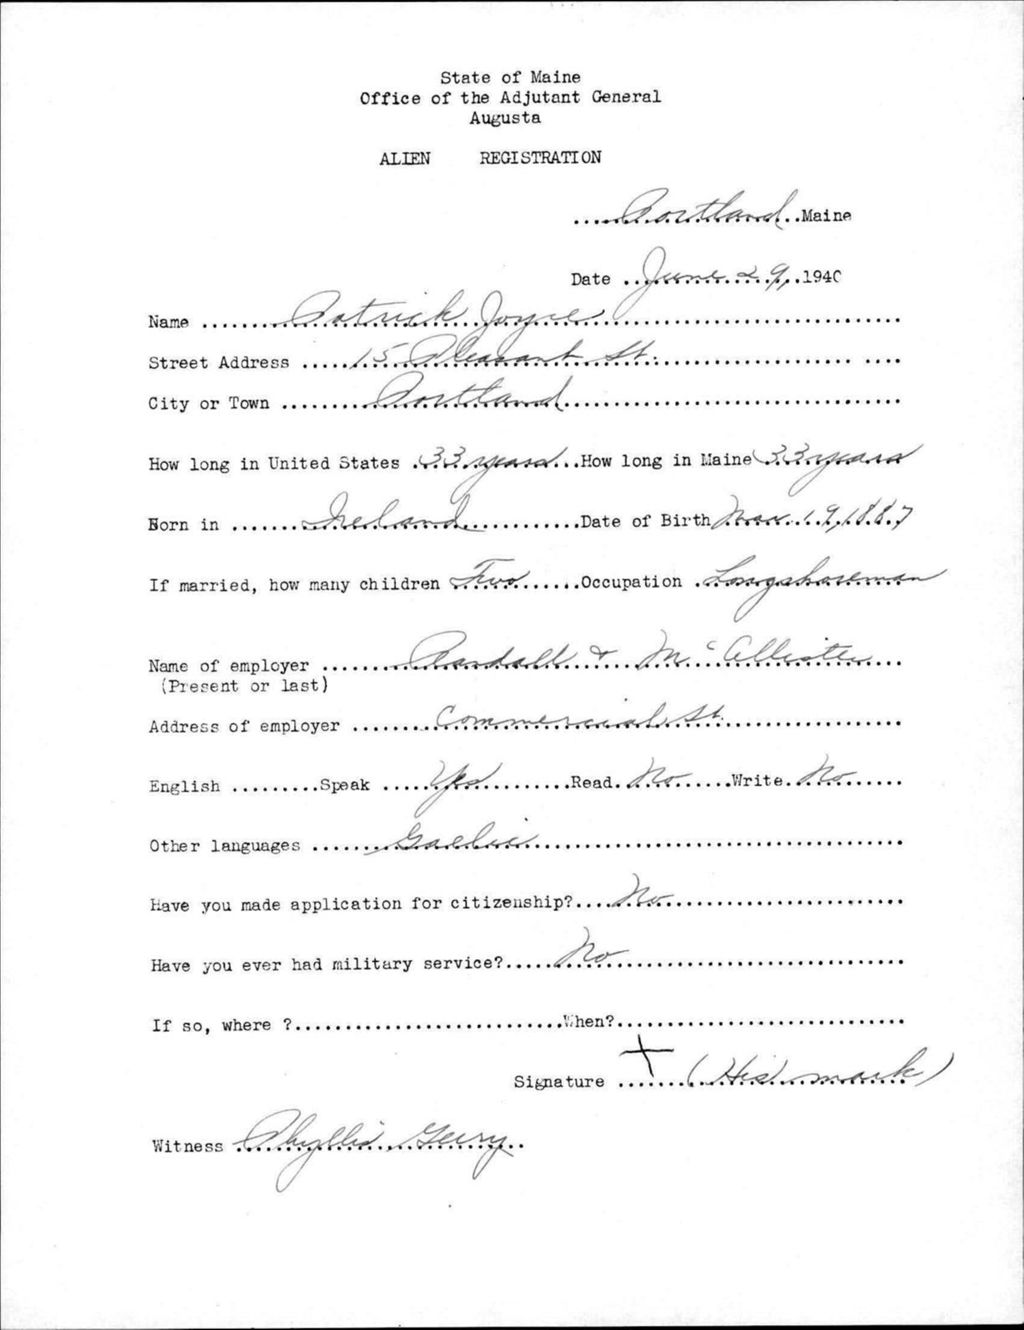 State of Maine
Office of the Adjutant General
Augusta
ALIEN REGISTRATION
Portland Maine
Date June 29, 1940
Name Patrick Joyce
Street Address 15 Pleasant St.
City or Town Portland
How long in United States 33 years How long in Maine 33 years
Born in Ireland Date of Birth Mar. 19, 1887
If married, how many children Two Occupation Longshoreman
Name of employer Randall & McAllister
(Present or last)
Address of employer Commercial St.
English Speak Yes Read No Write No
Other languages Gaelic
Have you made application for citizenship? No
Have you ever had military service? No
If so, where ? When?
Signature + (His mark)
Witness Phyllis Geery